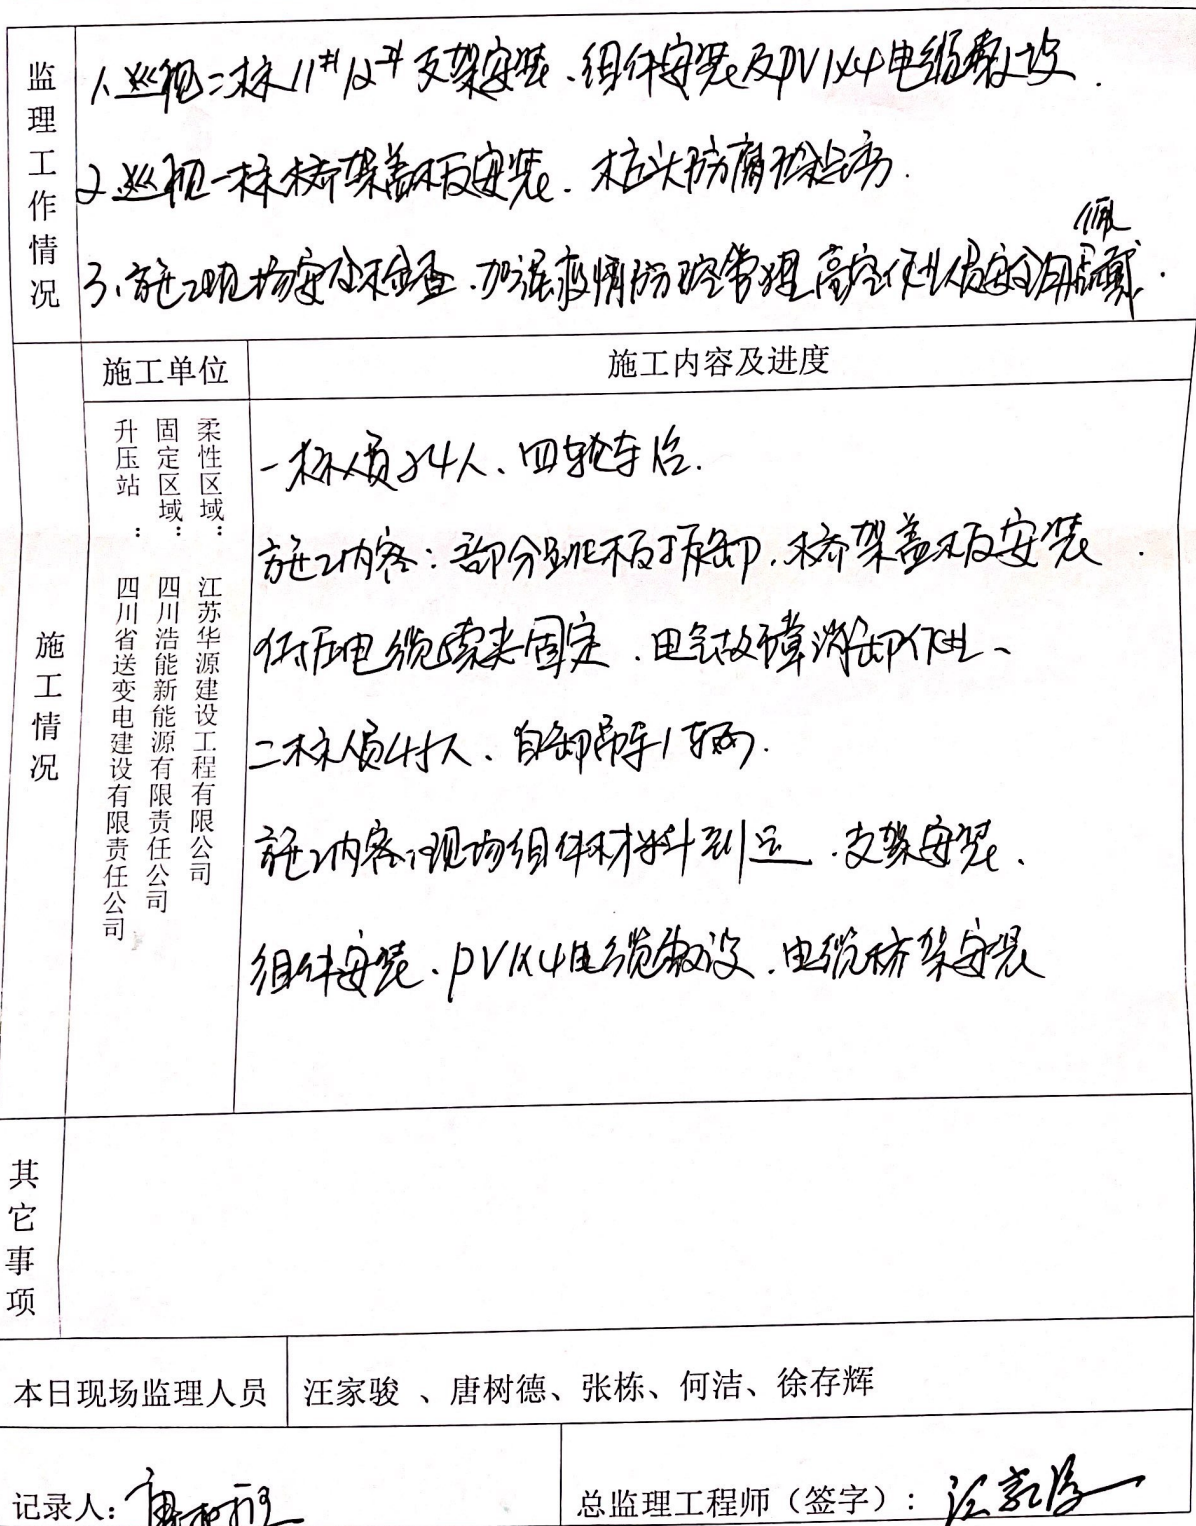 监理工作情况
1、巡视二标11#12#支架安装、组件安装及PV1x4电缆敷设.
2、巡视一标桥架盖板安装、桩头防腐
3、施工现场安全检查、加强疫情防控管理、高空作业人员安全佩戴.
施工情况
施工单位
施工内容及进度
柔性区域: 江苏华源建设工程有限公司
固定区域: 四川浩能新能源有限责任公司
升压站: 四川省送变电建设有限责任公司
一标人员24人、四轮车1台.
施工内容:部分跳板拆卸、桥架盖板安装.
低压电缆索夹固定、电气故障消缺作业、
二标人员45人、自卸吊车1辆.
施工内容:现场组件材料到运、支架安装、
组件安装、PV1x4电缆敷设、电缆桥架安装
其它事项
本日现场监理人员
汪家骏、唐树德、张栋、何洁、徐存辉
记录人:
总监理工程师(签字): 汪家骏